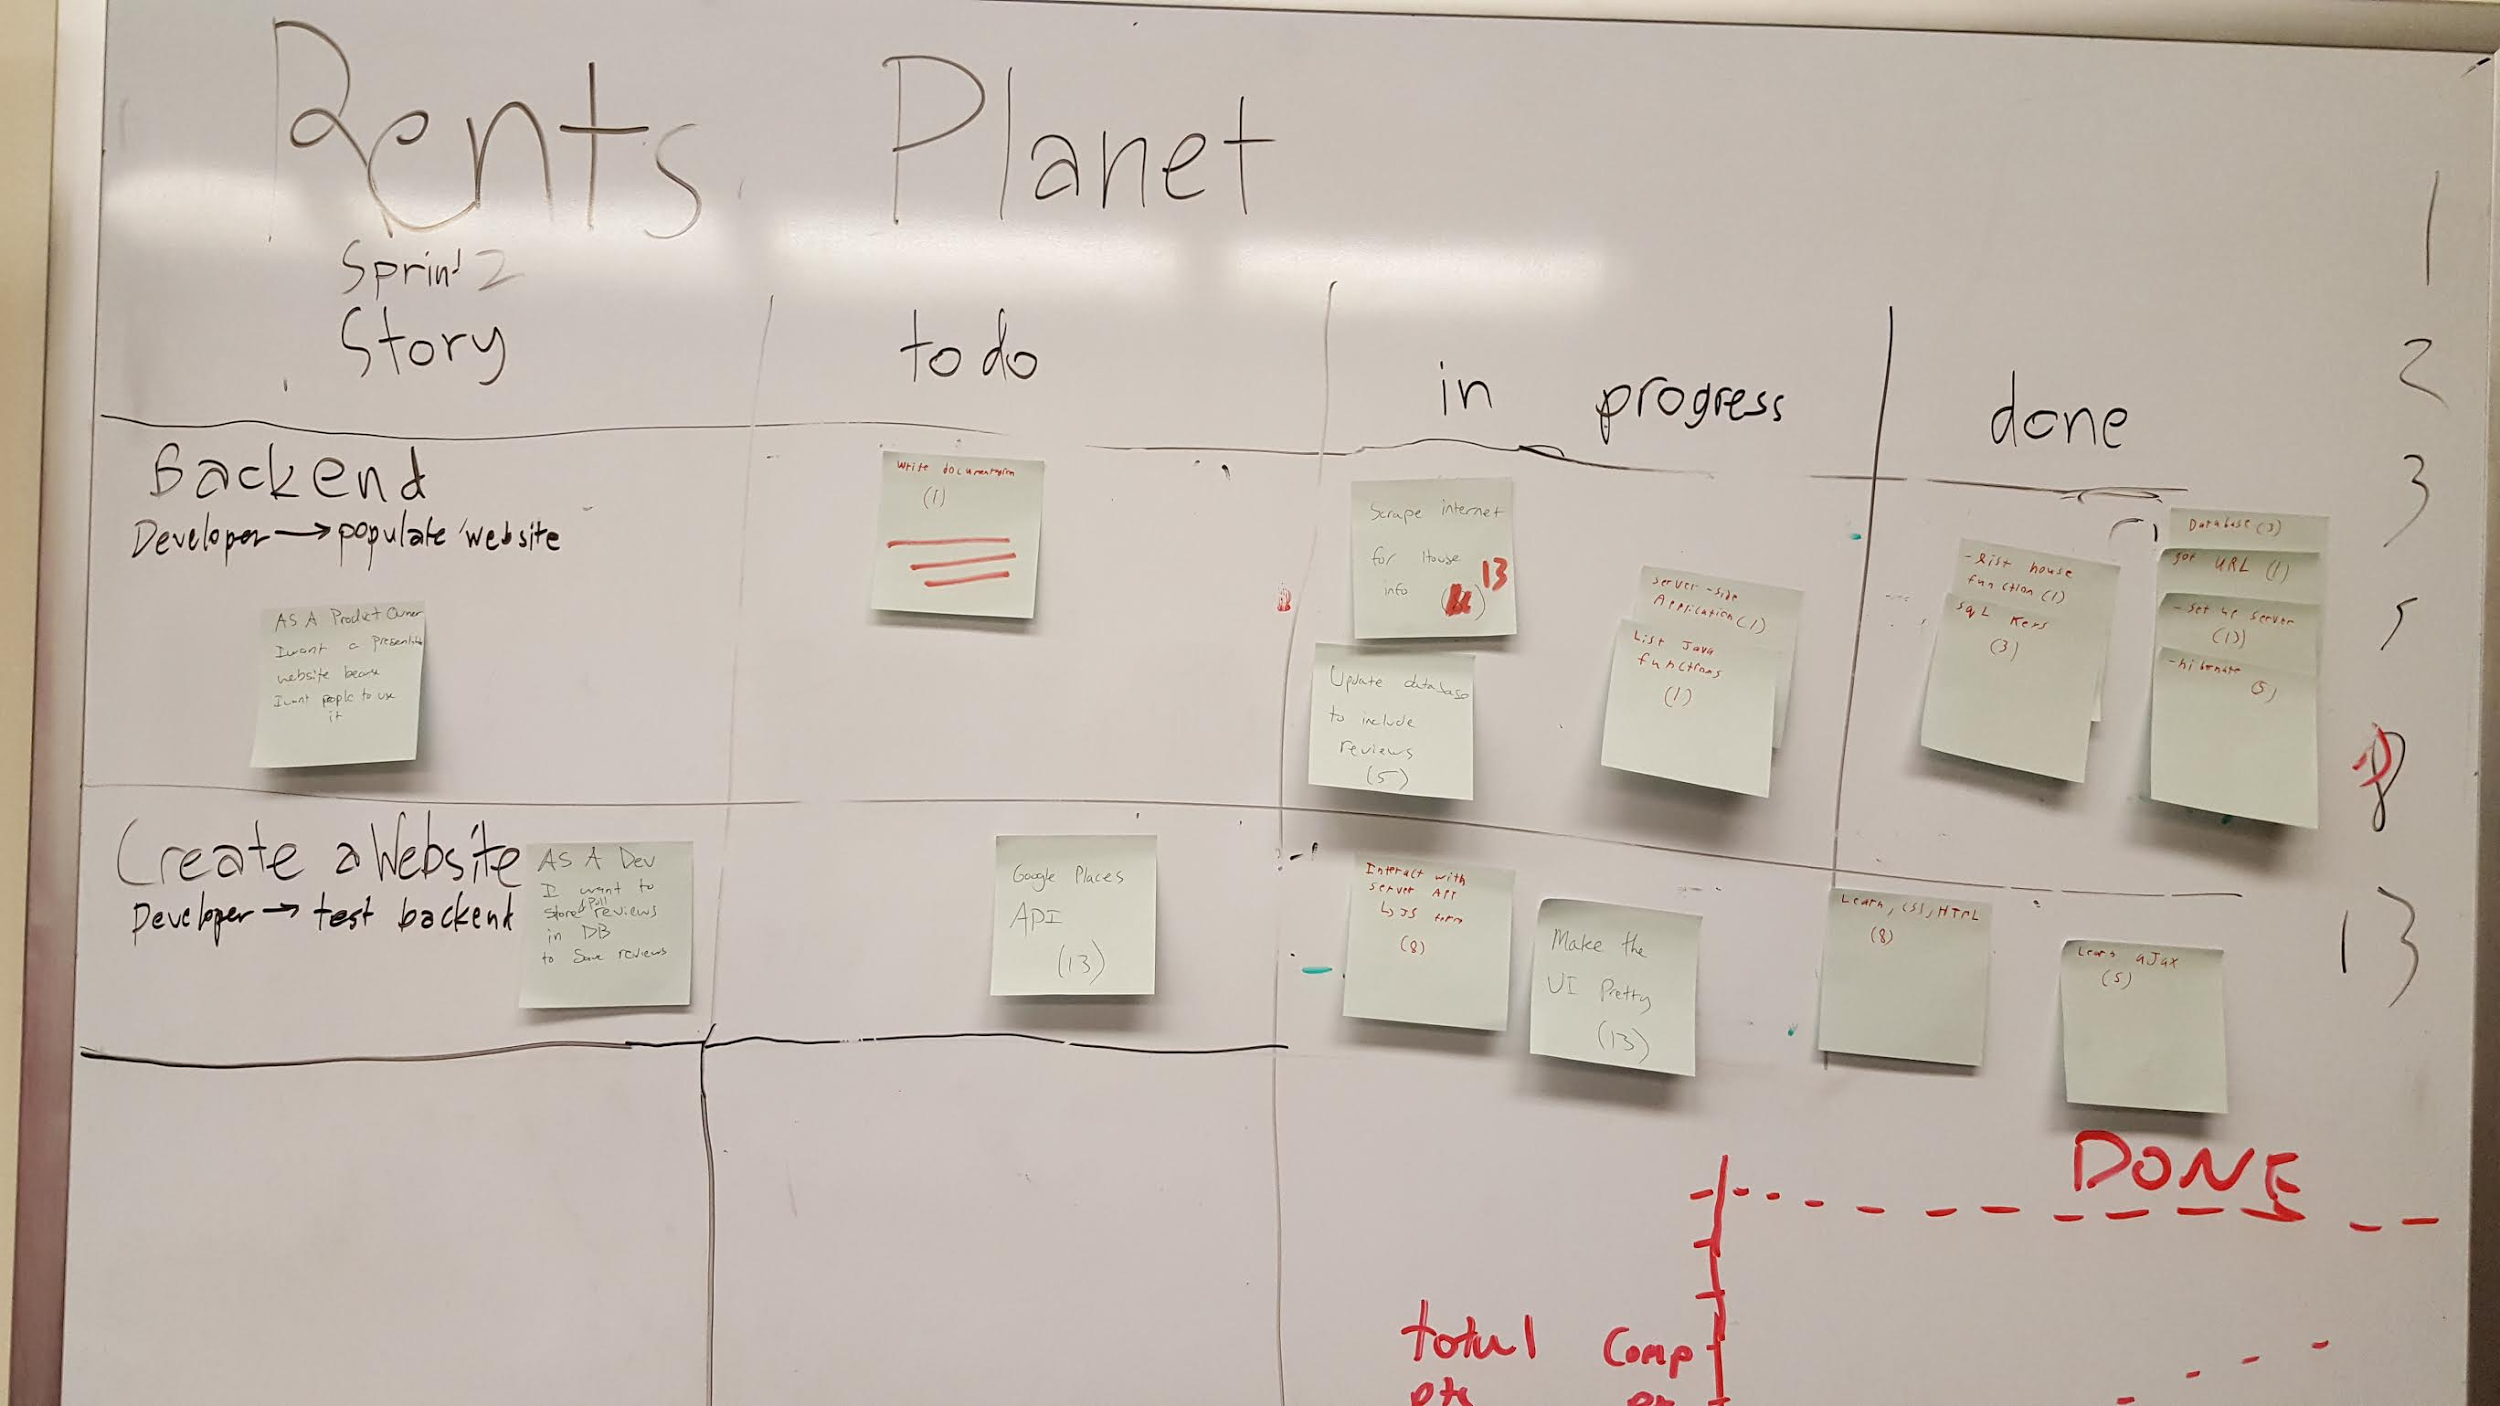 Rents Planet
Sprint 2
Story
to do
in progress
done
1
2
3
5
8
13
Backend
Developer → populate website
AS A Product Owner
I want a
website
I want people to use
it
Write documentation
(1)
Scrape internet
for House
info 13
Update database
to include
reviews
(5)
server-side
Application (1)
List Java
functions
(1)
-list house
function (1)
SQL
(3)
Database (3)
URL (1)
-set up server
(13)
(5)
Create a Website
Developer → test backend
AS A Dev
I want to
store & pull reviews
in DB
to Save reviews
Google Places
API
(13)
Interact with
server API
↳ JS
(8)
Make the
UI Pretty
(13)
Learn, CSS, HTML
(8)
Learn aJax
(5)
DONE
total Comp